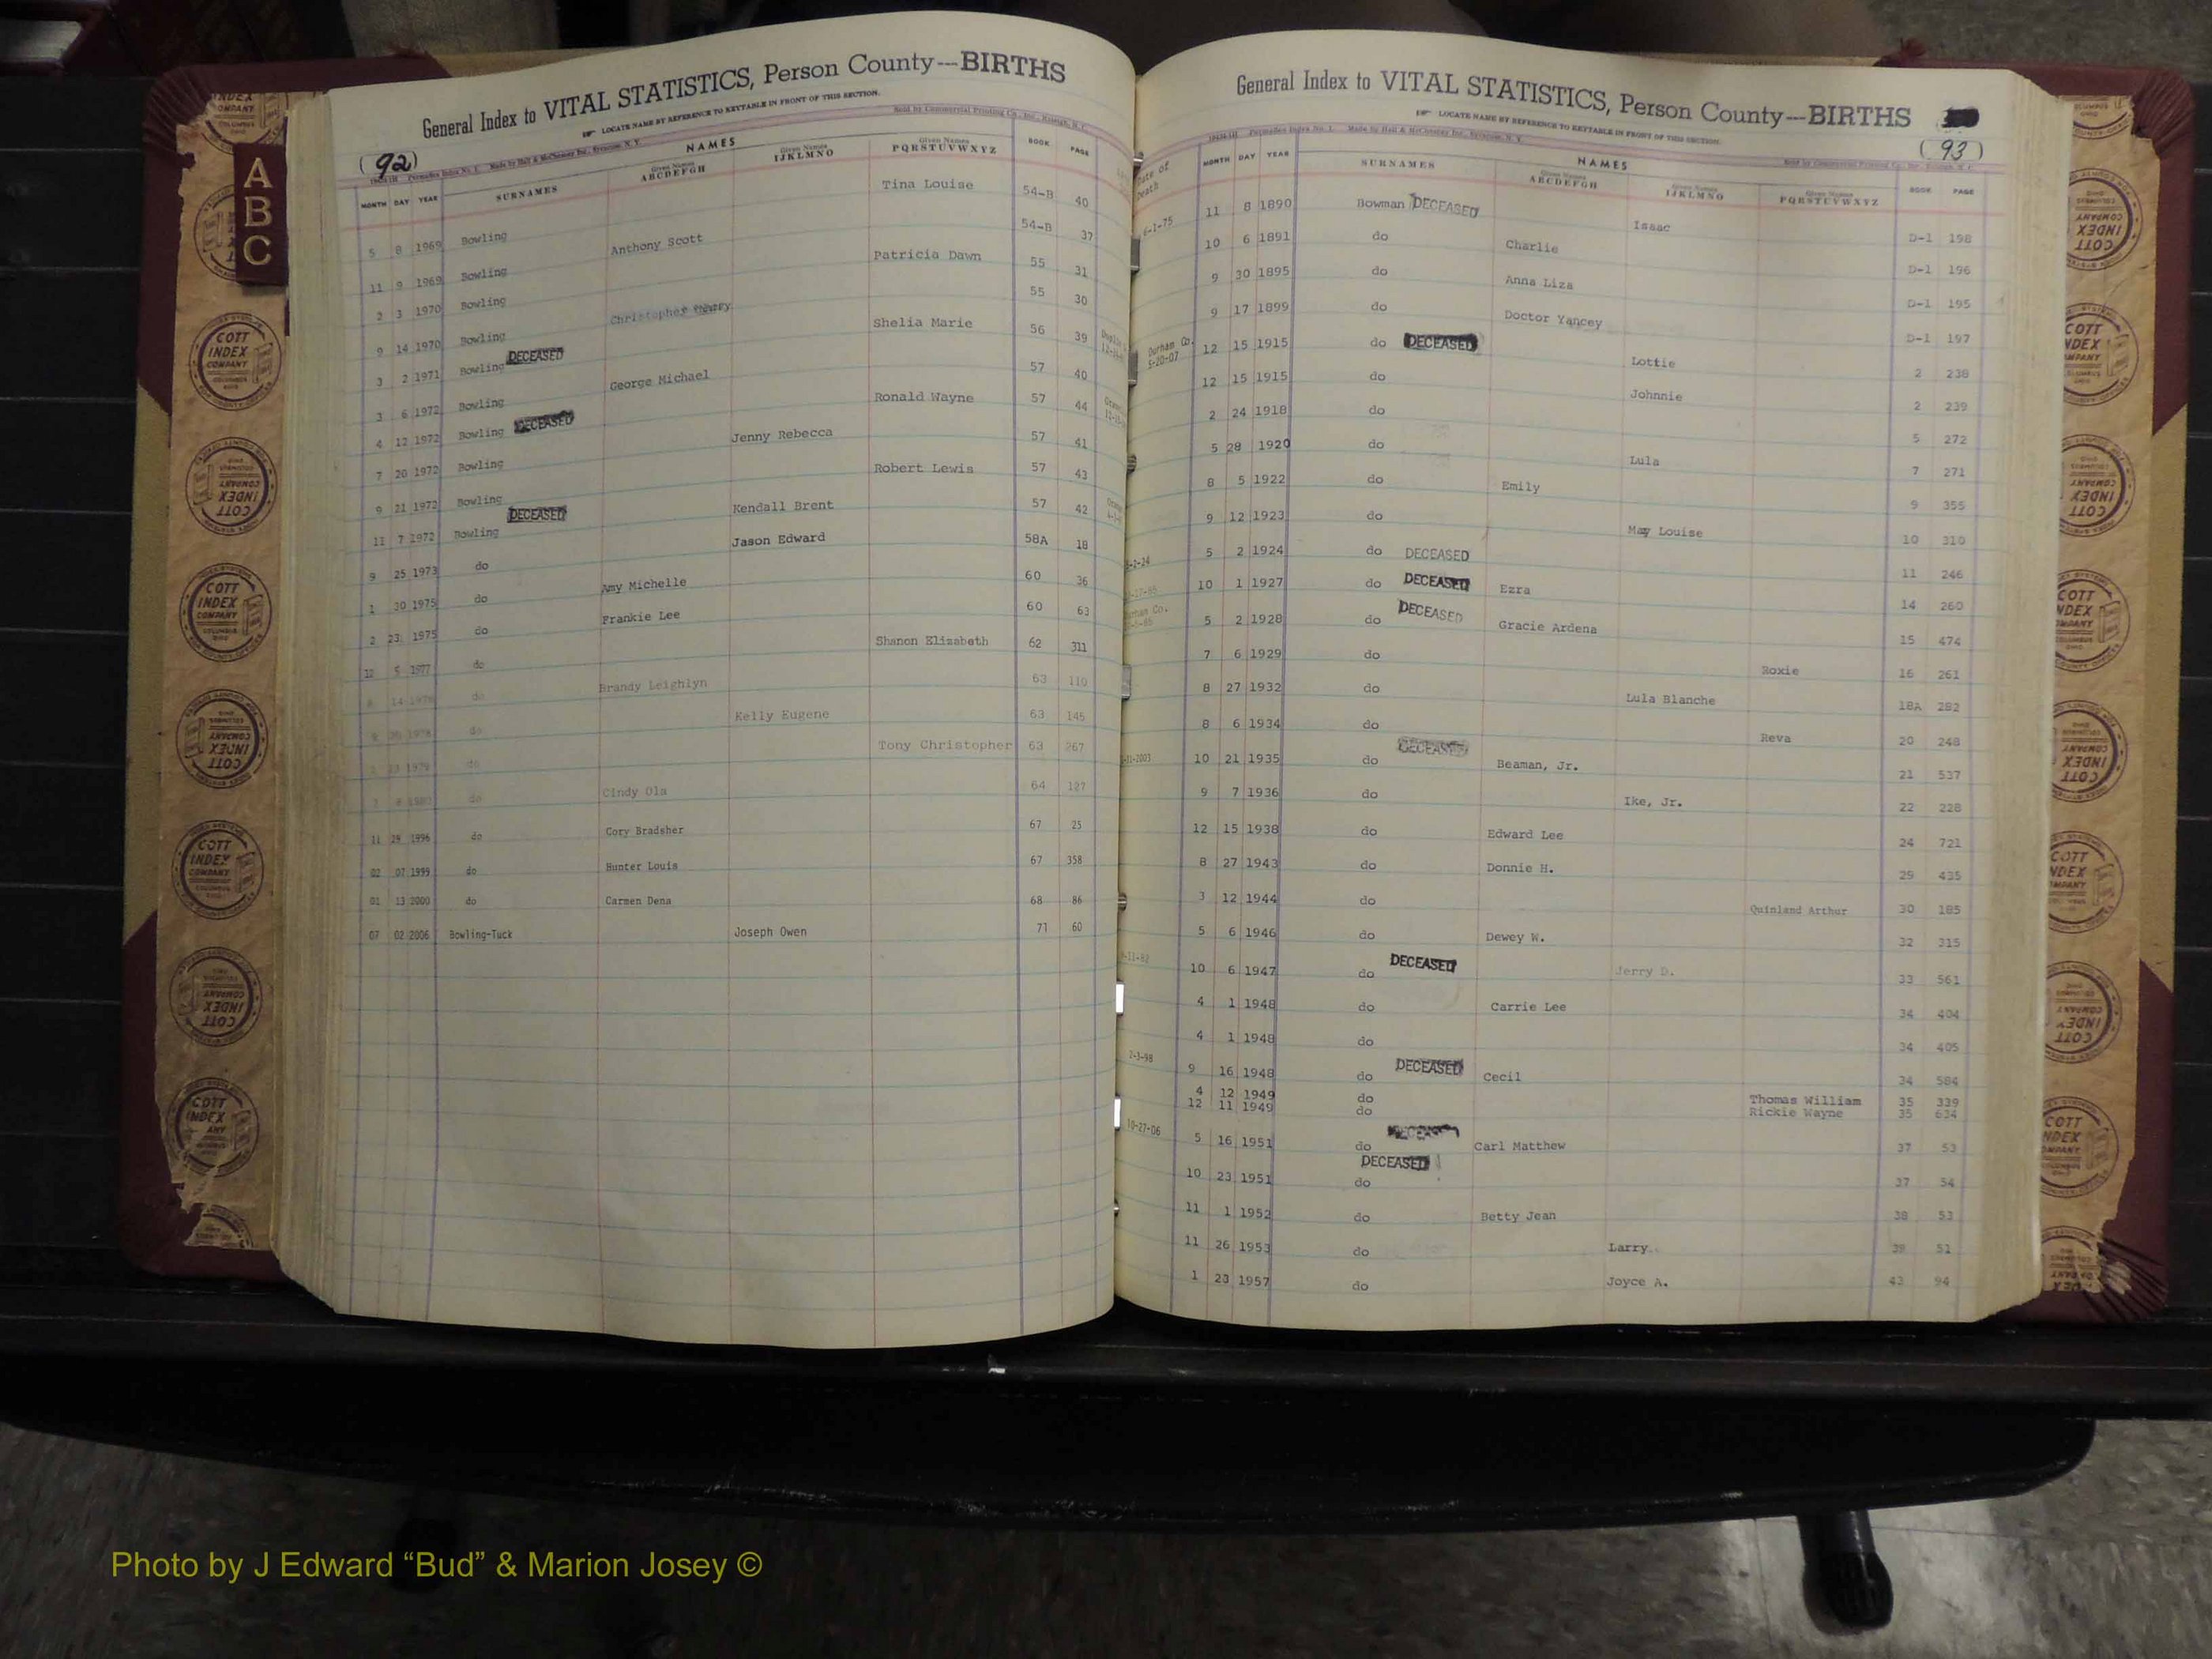 General Index to VITAL STATISTICS, Person County---BIRTHS
LOCATE NAME BY REFERENCE TO KEYTABLE IN FRONT OF THIS SECTION.
Sold by Commercial Printing Co., Inc., Raleigh, N. C.
(92)
Made by Hall & McChesney Inc., Syracuse, N. Y.
NAMES
MONTH DAY YEAR SURNAMES Given Names ABCDEFGH Given Names IJKLMNO Given Names PQRSTUVWXYZ BOOK PAGE
A
B
C
5 8 1969 Bowling Tina Louise 54-B 40
11 9 1969 Bowling Anthony Scott 54-B 37
2 3 1970 Bowling Patricia Dawn 55 31
9 14 1970 Bowling Christopher 55 30
3 2 1971 Bowling DECEASED Shelia Marie 56 39
3 6 1972 Bowling George Michael 57 40
4 12 1972 Bowling DECEASED Ronald Wayne 57 44
7 20 1972 Bowling Jenny Rebecca 57 41
9 21 1972 Bowling Robert Lewis 57 43
11 7 1972 Bowling DECEASED Kendall Brent 57 42
9 25 1973 do Jason Edward 58A 18
1 30 1975 do Amy Michelle 60 36
2 23 1975 do Frankie Lee 60 63
12 5 1977 do Shanon Elizabeth 62 311
14 1978 do Brandy Leighlyn 63 110
do Kelly Eugene 63 145
23 1979 do Tony Christopher 63 267
do Cindy Ola 64 127
11 29 1996 do Cory Bradsher 67 25
02 07 1999 do Hunter Louis 67 358
01 13 2000 do Carmen Dena 68 86
07 02 2006 Bowling-Tuck Joseph Owen 71 60
General Index to VITAL STATISTICS, Person County---BIRTHS
LOCATE NAME BY REFERENCE TO KEYTABLE IN FRONT OF THIS SECTION.
(93)
Made by Hall & McChesney Inc., Syracuse, N. Y.
Sold by Commercial Printing Co., Inc., Raleigh, N. C.
NAMES
Date of Death MONTH DAY YEAR SURNAMES Given Names ABCDEFGH Given Names IJKLMNO Given Names PQRSTUVWXYZ BOOK PAGE
6-1-75 11 8 1890 Bowman DECEASED Isaac D-1 198
10 6 1891 do Charlie D-1 196
9 30 1895 do Anna Liza D-1 195
9 17 1899 do Doctor Yancey D-1 197
Durham Co. 5-20-07 12 15 1915 do DECEASED Lottie 2 238
12 15 1915 do Johnnie 2 239
2 24 1918 do 5 272
5 28 1920 do Lula 7 271
8 5 1922 do Emily 9 355
9 12 1923 do May Louise 10 310
5 2 1924 do DECEASED 11 246
10 1 1927 do DECEASED Ezra 14 260
5 2 1928 do DECEASED Gracie Ardena 15 474
7 6 1929 do Roxie 16 261
8 27 1932 do Lula Blanche 18A 282
8 6 1934 do Reva 20 248
10 21 1935 do DECEASED Beaman, Jr. 21 537
9 7 1936 do Ike, Jr. 22 228
12 15 1938 do Edward Lee 24 721
8 27 1943 do Donnie H. 29 435
3 12 1944 do Quinland Arthur 30 185
5 6 1946 do Dewey W. 32 315
10 6 1947 do DECEASED Jerry D. 33 561
4 1 1948 do Carrie Lee 34 404
4 1 1948 do 34 405
2-3-98 9 16 1948 do DECEASED Cecil 34 584
4 12 1949 do Thomas William 35 339
12 11 1949 do Rickie Wayne 35 634
10-27-06 5 16 1951 do DECEASED Carl Matthew 37 53
10 23 1951 do DECEASED 37 54
11 1 1952 do Betty Jean 38 53
11 26 1953 do Larry 39 51
1 23 1957 do Joyce A. 43 94
COTT INDEX COMPANY COLUMBUS OHIO
Photo by J Edward “Bud” & Marion Josey ©